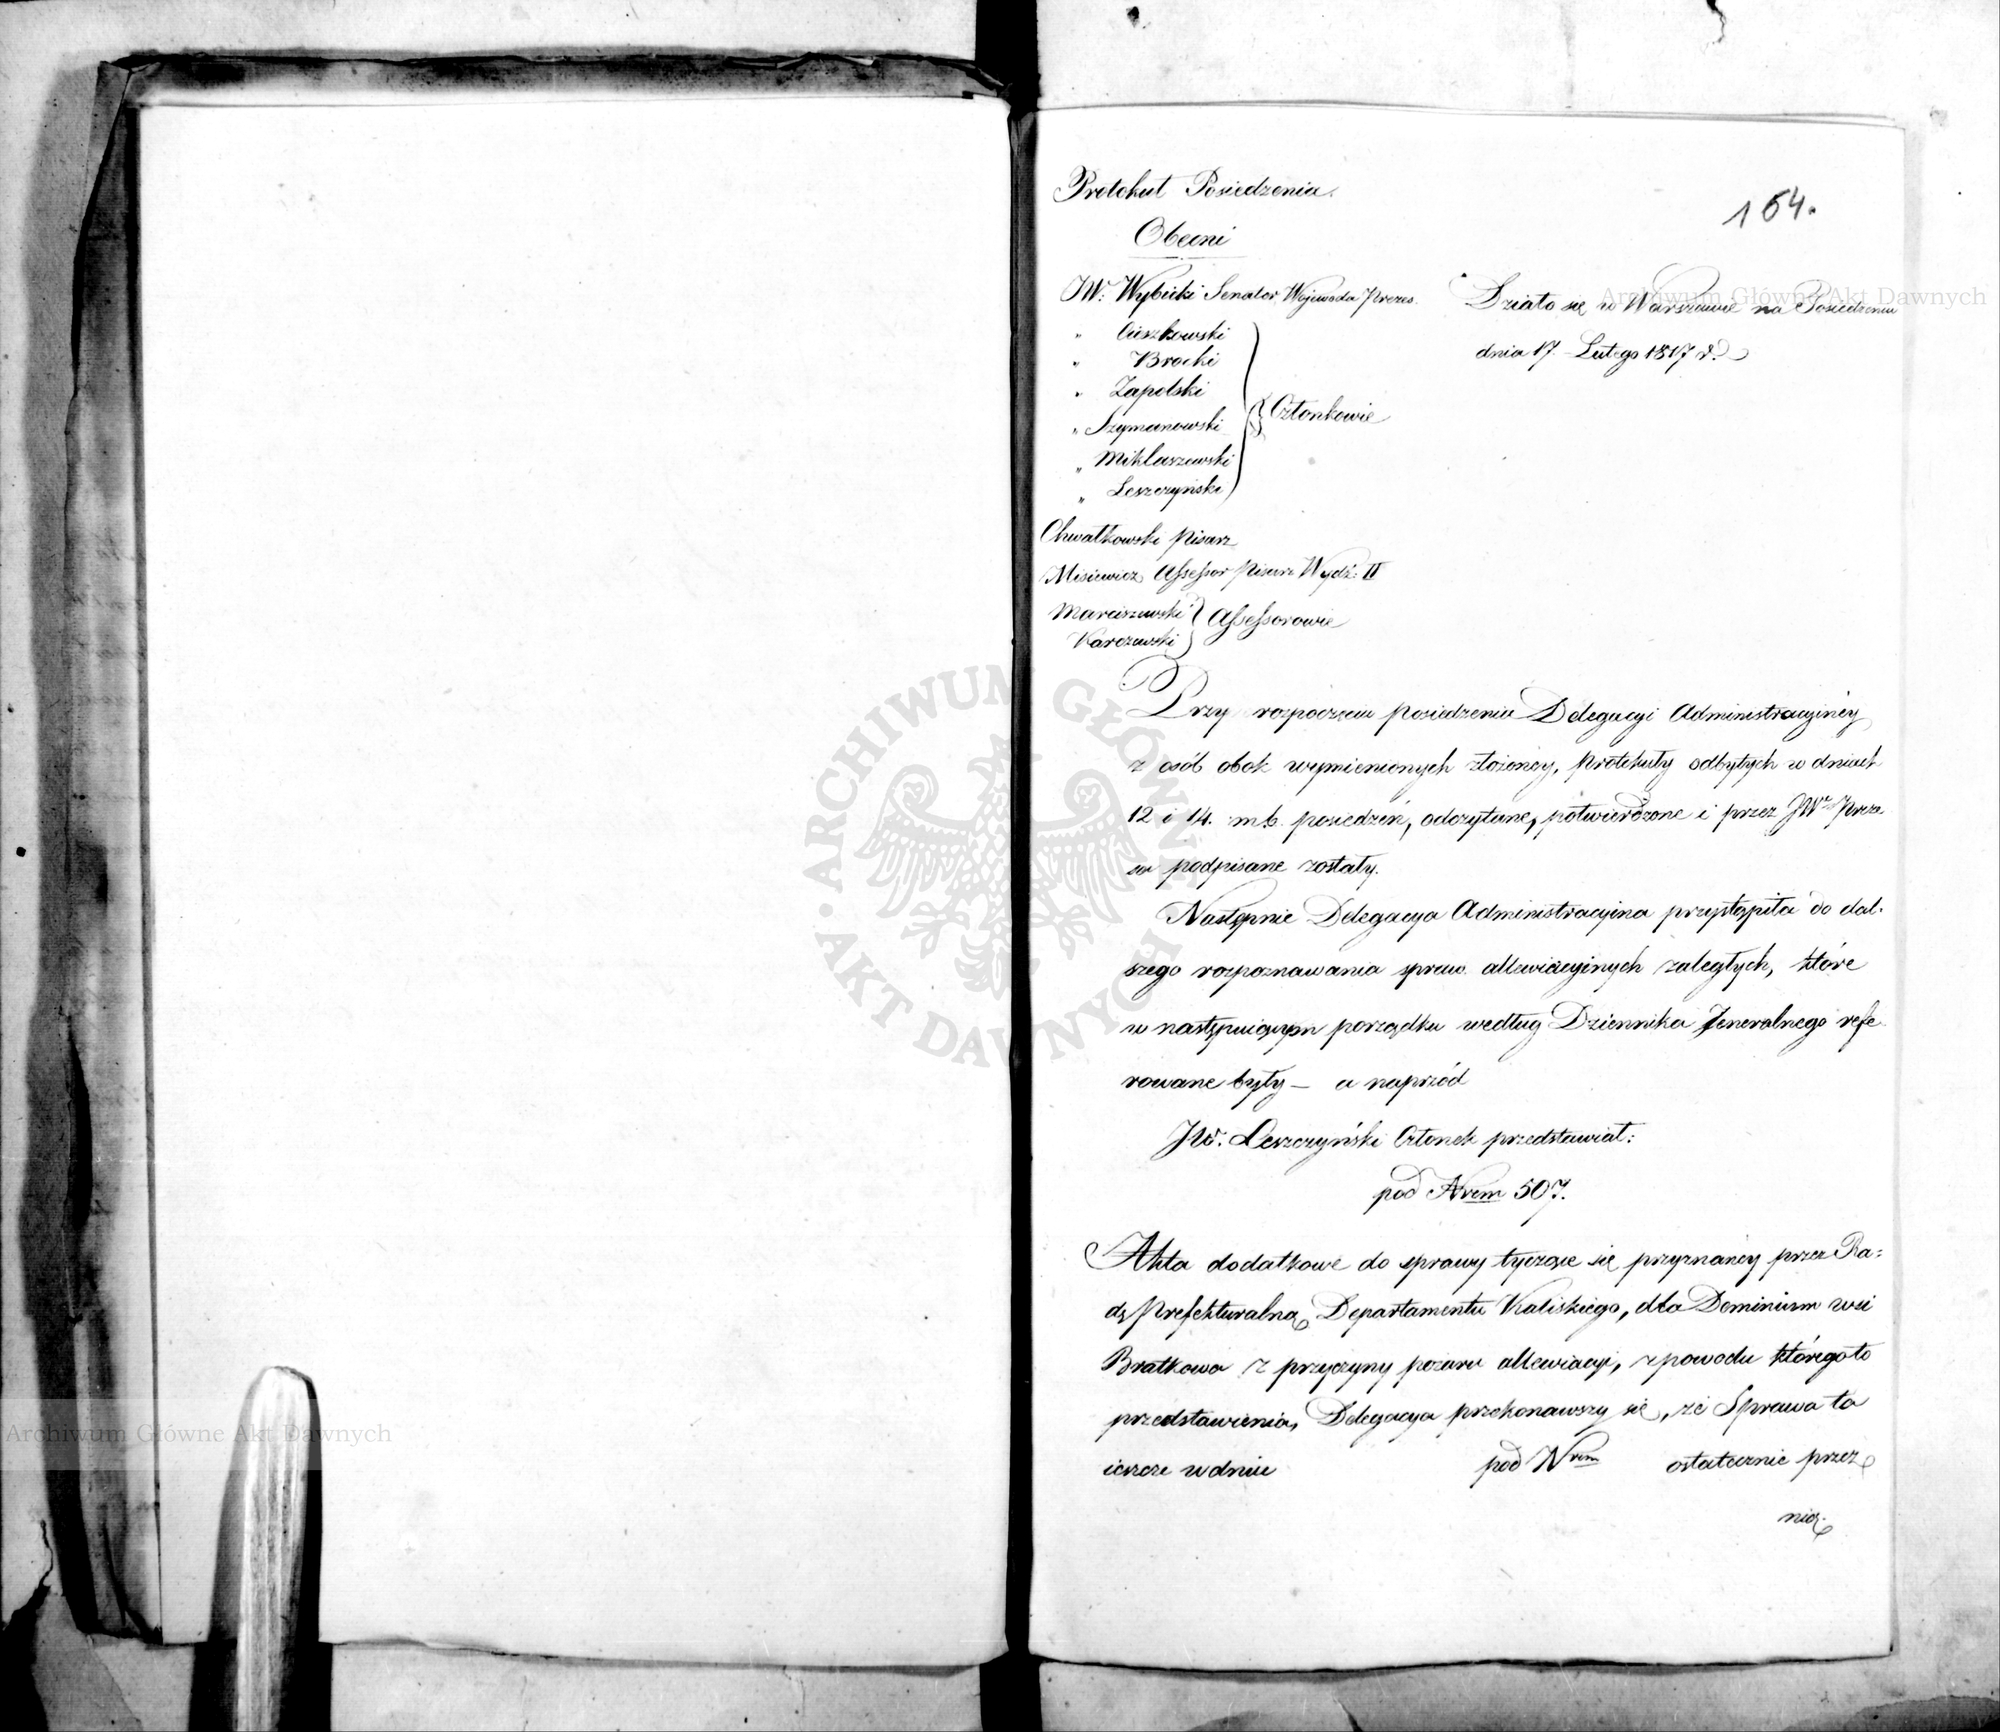 164.
Protokuł Posiedzenia.
Obecni
JW: Wybicki Senator Wojewoda Prezes.
" Cieszkowski
" Brocki
" Zapolski
" Szymanowski
" Miklaszewski
" Leszczyński
Członkowie
Chwałkowski Pisarz
Misiewicz Assessor Pisarz Wydź: II
Marciszewski
Karczewski
Assessorowie
Działo się w Warszawie na Posiedzeniu
dnia 17. Lutego 1817 r.
Przy rozpoczęciu posiedzenia Delegacyi Administracyinéy
z osób obok wymienionych złożonéy, protokuły odbytych w dniach
12 i 14. m.b. posiedzeń, odczytane, potwierdzone i przez JWo Preze-
sa podpisane zostały.
Następnie Delegacya Administracyina przystąpiła do dal-
szego rozpoznawania spraw allewiacyinych zaległych, które
w następuiącym porządku według Dziennika Jeneralnego refe-
rowane były – a naprzód
JW. Leszczyński Członek przedstawiał:
pod Nrem 507.
Akta dodatkowe do sprawy tyczące się przyznanéy przez Ra-
dę Prefekturalną Departamentu Kaliskiego, dla Dominium wsi
Bratkowa z przyczyny pożaru allewiacyi, z powodu którégoto
przedstawienia, Delegacya przekonawszy się, że Sprawa ta
ieszcze w dniu pod Nrem ostatecznie przez
nią.
Archiwum Główne Akt Dawnych
Archiwum Główne Akt Dawnych
ARCHIWUM GŁÓWNE · AKT DAWNYCH